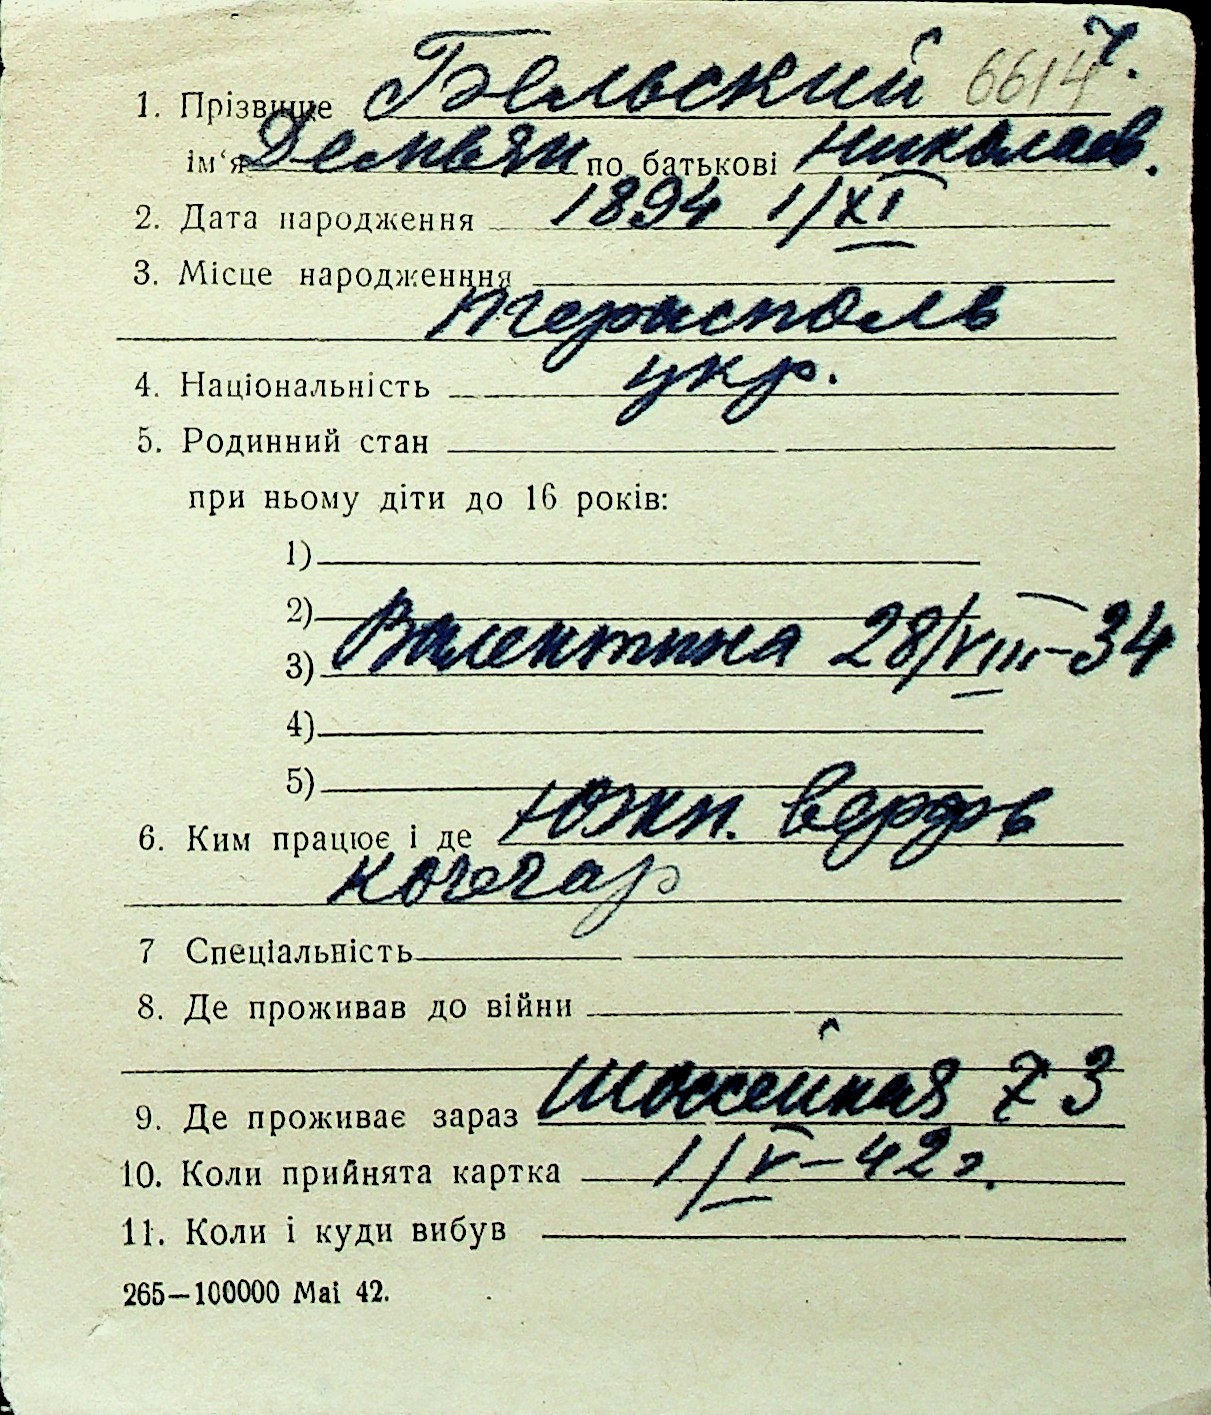 ч.
1. Прізвище Бельский 6614
ім'я Демьян по батькові Николаев.
2. Дата народження 1894 1/XI
3. Місце народженння
Терисполь
4. Національність укр.
5. Родинний стан
при ньому діти до 16 років:
1)
2)
3) Валентина 28/VIII-34
4)
5)
6. Ким працює і де Южн. верфь
кочегар
7 Спеціальність
8. Де проживав до війни
9. Де проживає зараз Шоссейная 73
10. Коли прийнята картка 1/V-42 г.
11. Коли і куди вибув
265—100000 Mai 42.